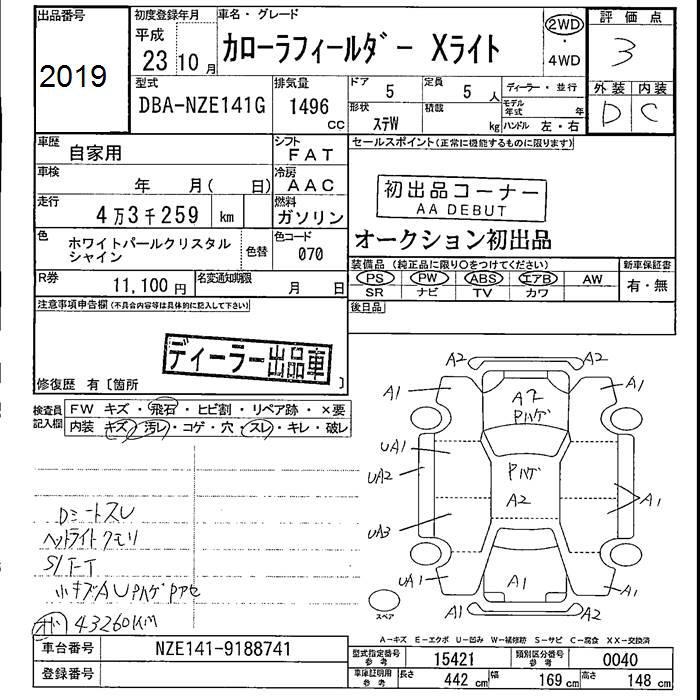 出品番号
2019
初度登録年月
平成
23 10 月
車名・グレード
カローラフィールダー Xライト
2WD
・
4WD
評価点
3
外装 内装
D C
型式
DBA-NZE141G
排気量
1496
CC
ドア
5
定員
5 人
ディーラー・並行
形状
ステW
積載
kg
モデル年式 年
ハンドル 左・右
車歴
自家用
シフト
FAT
セールスポイント(正常に機能するものに限ります)
車検
年 月( 日)
冷房
AAC
初出品コーナー
AA DEBUT
走行
4万3千259 km
燃料
ガソリン
オークション初出品
色
ホワイトパールクリスタル
シャイン
色替
色コード
070
装備品(純正品に限り○をつけてください)
新車保証書
PS PW ABS エアB AW
SR ナビ TV カワ
有・無
R券
11,100 円
名変通知期限
月 日
注意事項申告欄(不具合内容等は具体的に記入して下さい)
後日品
ディーラー出品車
修復歴 有〔箇所 〕
検査員
記入欄
FW キズ・飛石・ヒビ割・リペア跡・×要
内装 キズ・汚レ・コゲ・穴・スレ・キレ・破レ
Dシートスレ
ヘッドライトクモリ
S/T-T
小キズAUPハゲPアセ
オド 43260KM
A2 A2
A1 A2 A1
Pハゲ
UA1
UA2 Pハゲ
A2 A1
UA3
UA1 A1 A1
スペア
A1 A2
A-キズ E-エクボ U-凹み W-補修跡 S-サビ C-腐食 XX-交換済
車台番号
NZE141-9188741
型式指定番号
参考
15421
類別区分番号
参考
0040
登録番号
車庫証明用
参考
長さ
442 cm
幅
169 cm
高さ
148 cm